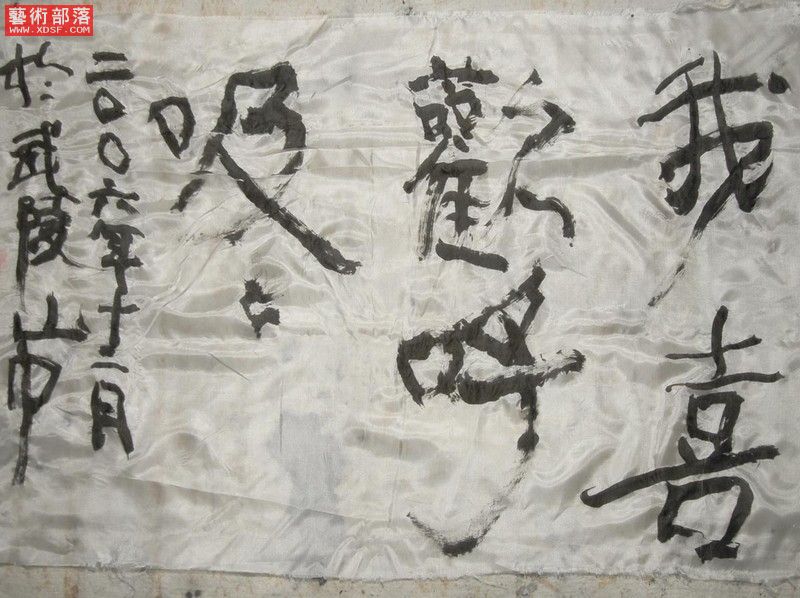 我喜
歡呼
吸
二〇〇六年十二月
於武陵山中
藝術部落
WWW.XDSF.COM